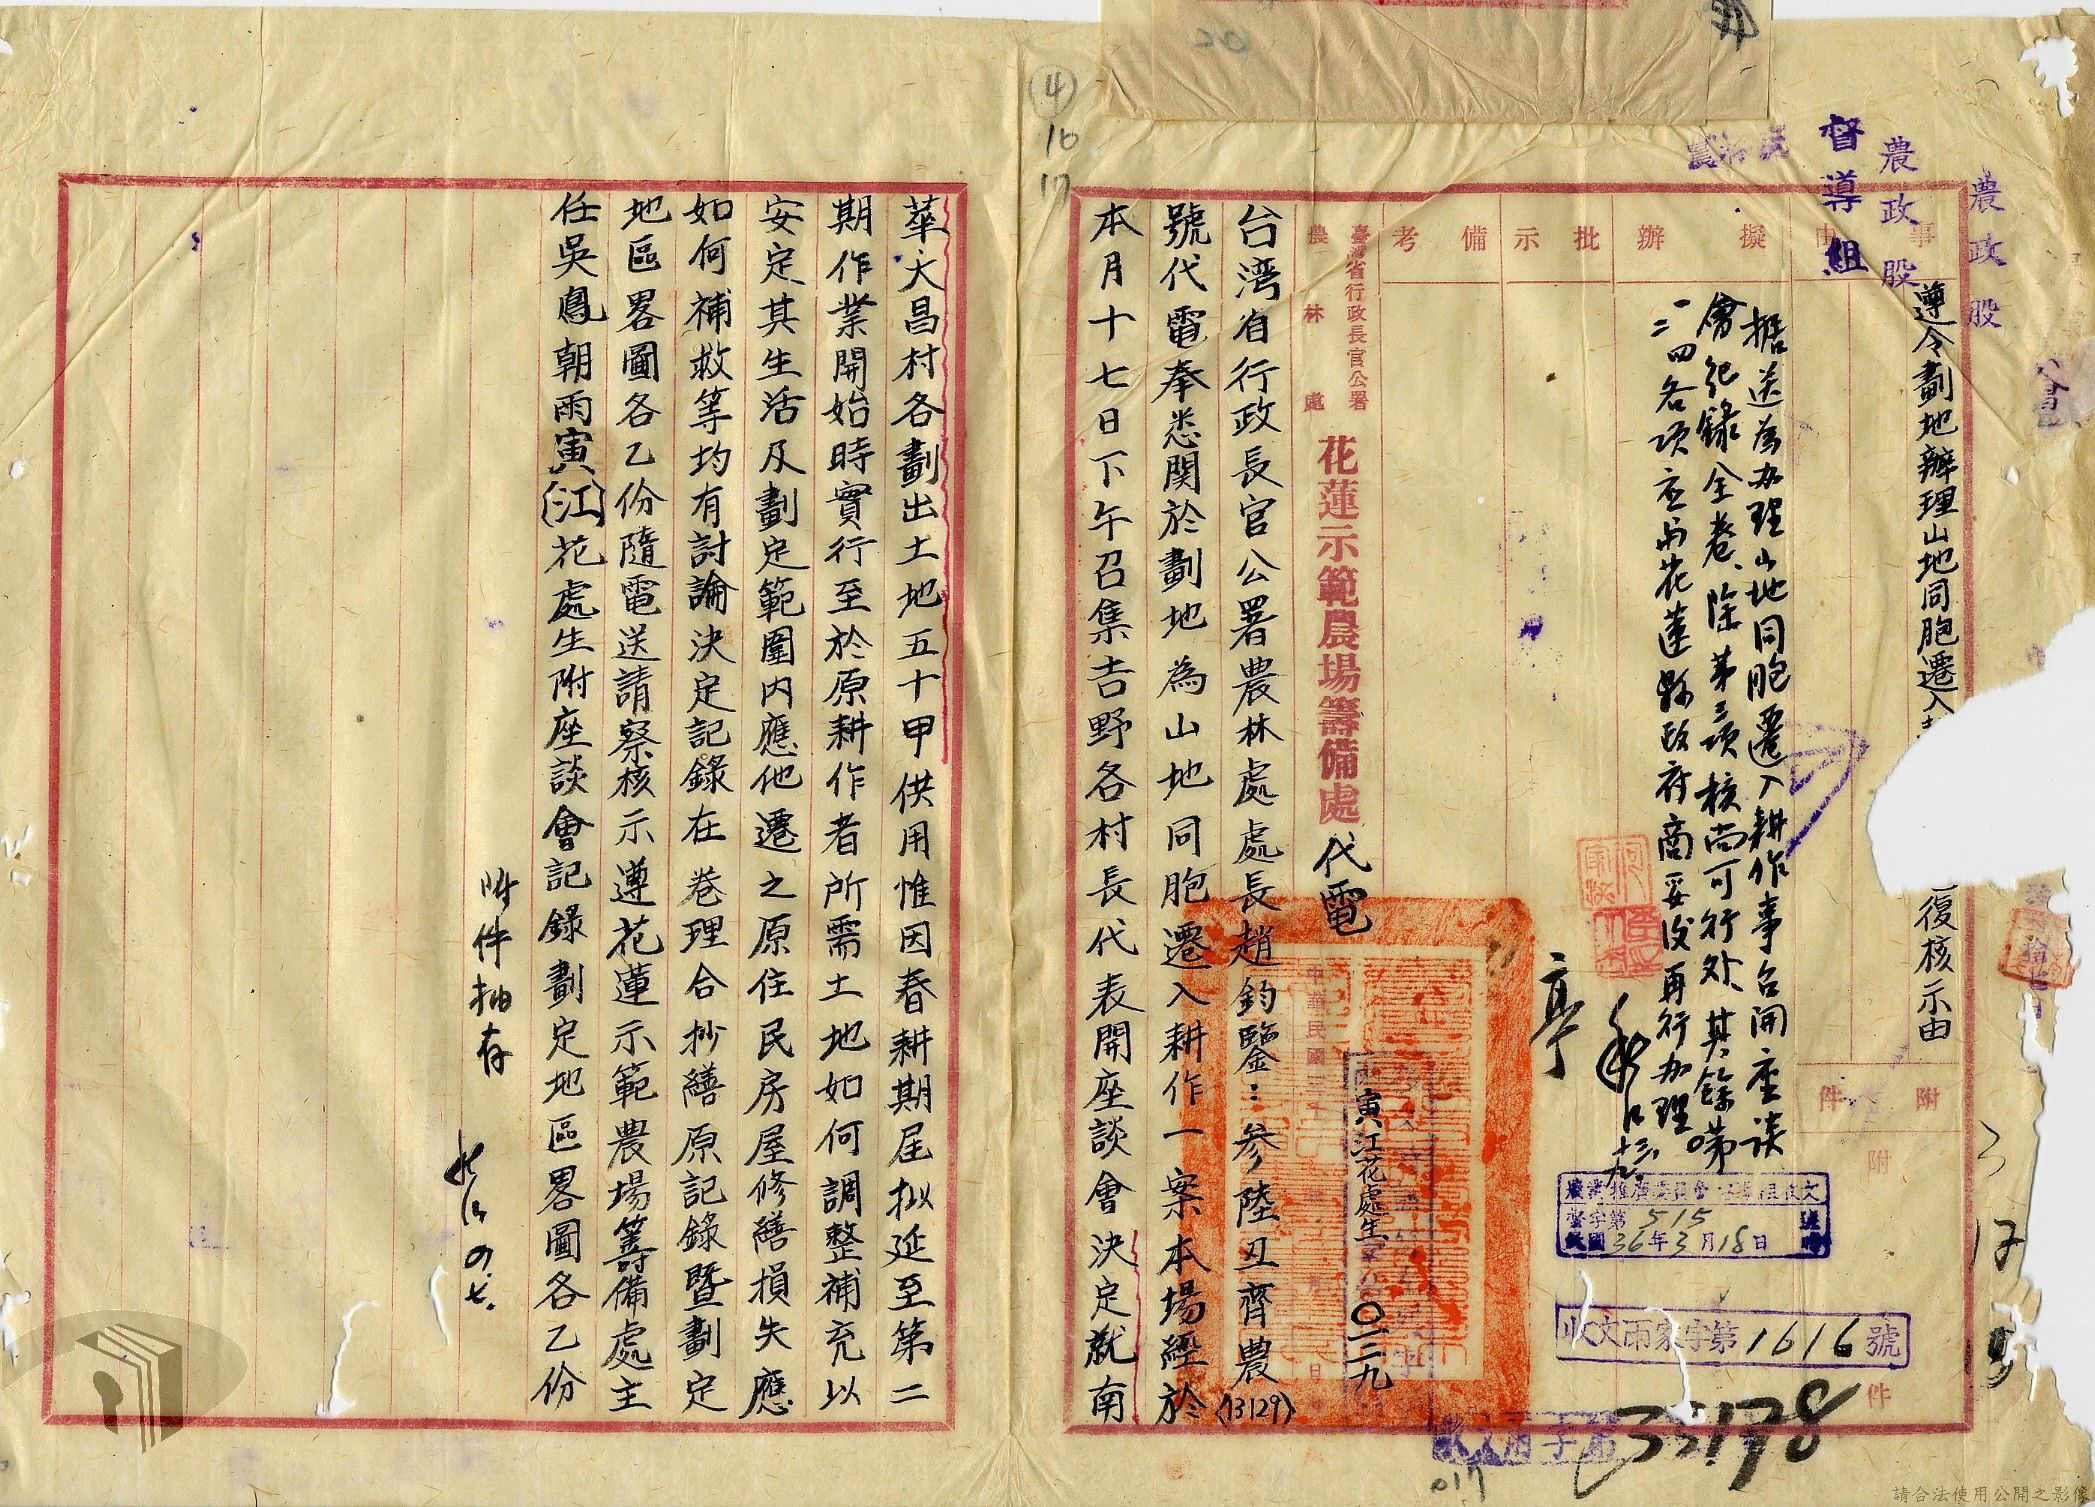 農政股
農政股
督導組
事由
遵令劃地辦理山地同胞遷入
復核示由
附件
擬辦
批示
備考
據送為办理山地同胞遷入耕作事召開座谈
會纪錄全卷、除第三项核尚可行外、其餘第
一二四各项应与花蓮縣政府商妥後再行办理。
臺灣省行政長官公署
農林處
花蓮示範農場籌備處代電
寅江花處生
〇一二九
台湾省行政長官公署農林處處長趙鈞鑒：參陸丑齊農(13129)
號代電奉悉関於劃地為山地同胞遷入耕作一案本場經於
本月十七日下午召集吉野各村長代表開座談會決定就南
華大昌村各劃出土地五十甲供用惟因春耕期屆拟延至第二
期作業開始時實行至於原耕作者所需土地如何調整補充以
安定其生活及劃定範圍内應他遷之原住民房屋修繕損失應
如何補救等均有討論決定記錄在卷理合抄繕原記錄暨劃定
地區畧圖各乙份隨電送請察核示遵花蓮示範農場籌備處主
任吳鳳朝雨寅(江)花處生附座談會記錄劃定地區畧圖各乙份
附件抽存
督字第515
民國36年3月18日
收文雨家字第1616號
件
33178
017
④
16
17
請合法使用公開之影像